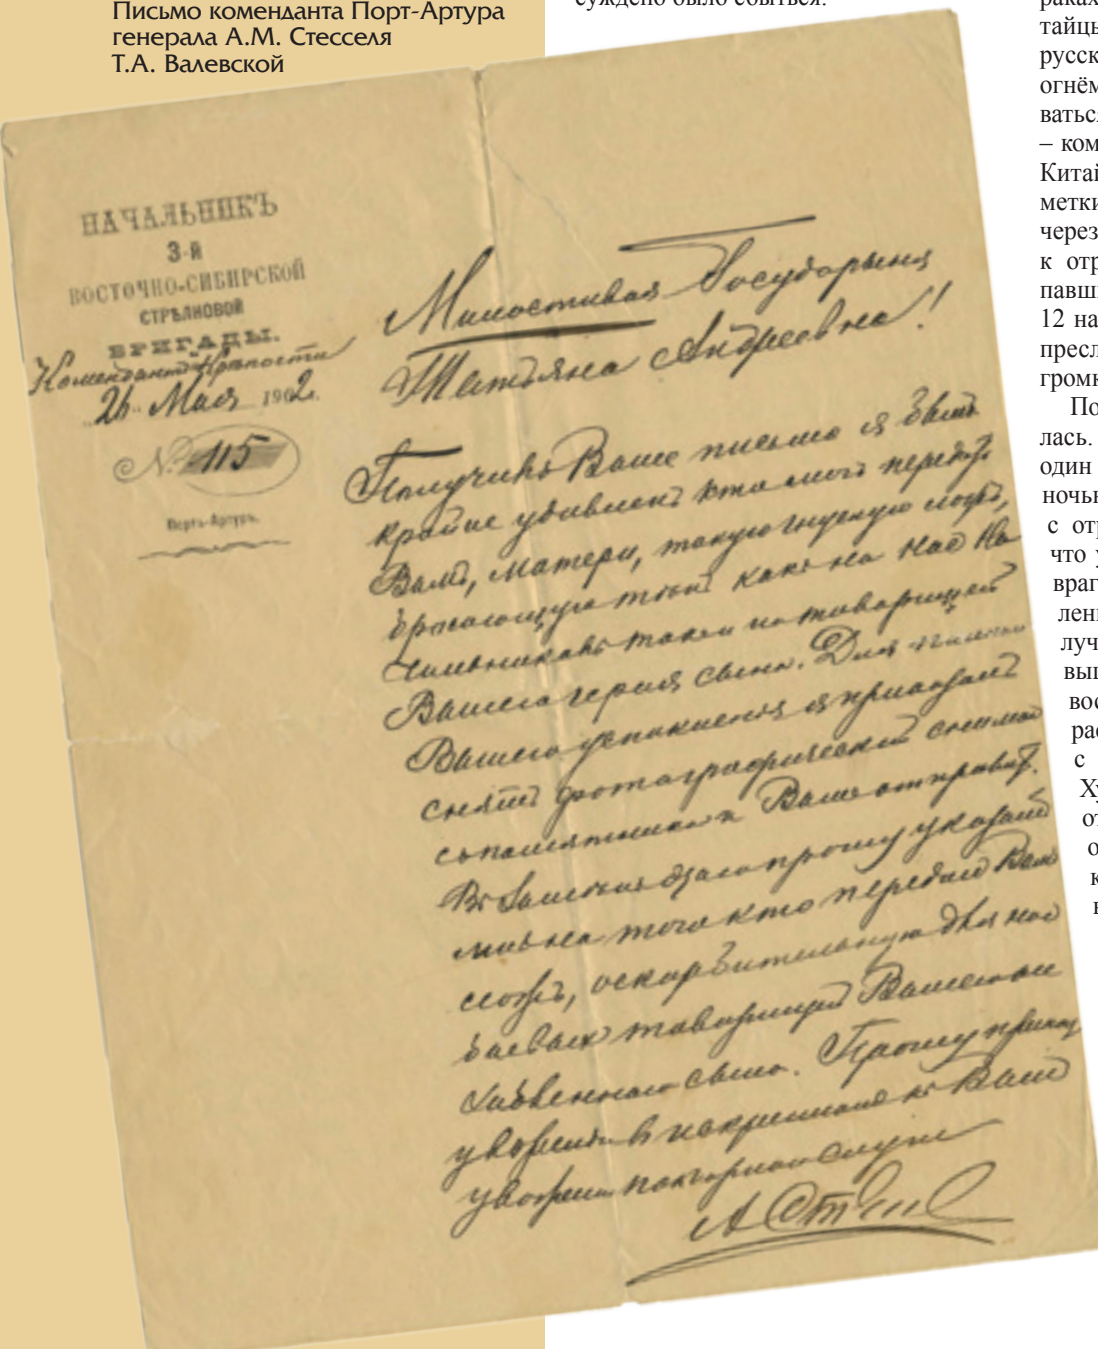 Письмо коменданта Порт-Артура
генерала А.М. Стесселя
Т.А. Валевской
суждено было сбыться.
НАЧАЛЬНИКЪ
3-й
ВОСТОЧНО-СИБИРСКОЙ
СТРѢЛКОВОЙ
БРИГАДЫ.
Комендантъ Крѣпости
26 Мая 1902 г.
№ 115
Портъ-Артуръ.
Милостивая Государыня
Татьяна Андреевна!
Получивъ Ваше письмо я былъ
крайне удивленъ кто могъ передать
Вамъ, матери, такую гнусную ложь,
бросающую тѣнь какъ на насъ На
чальниковъ такъ и товарищей
Вашего героя сына. Для
Вашего успокоения я приказалъ
снять фотографический снимокъ
съ памятника и Вамъ отправить.
Въ заключение прошу указать
мнѣ на того кто передалъ Вамъ
ложь, оскорбительную для насъ
боевыхъ товарищей Вашего
сына. Прошу принять
увѣрение в искреннемъ къ Вамъ
уважении покорнаго слуги
А Стессель
раках
тайцы
русск
огнём
ваться
– ком
Китай
метки
через
к отр
павши
12 на
пресл
громк
По
лась.
один
ночью
с отр
что у
враг
лени
луч
выш
вос
рас
с
Ху
от
о
к